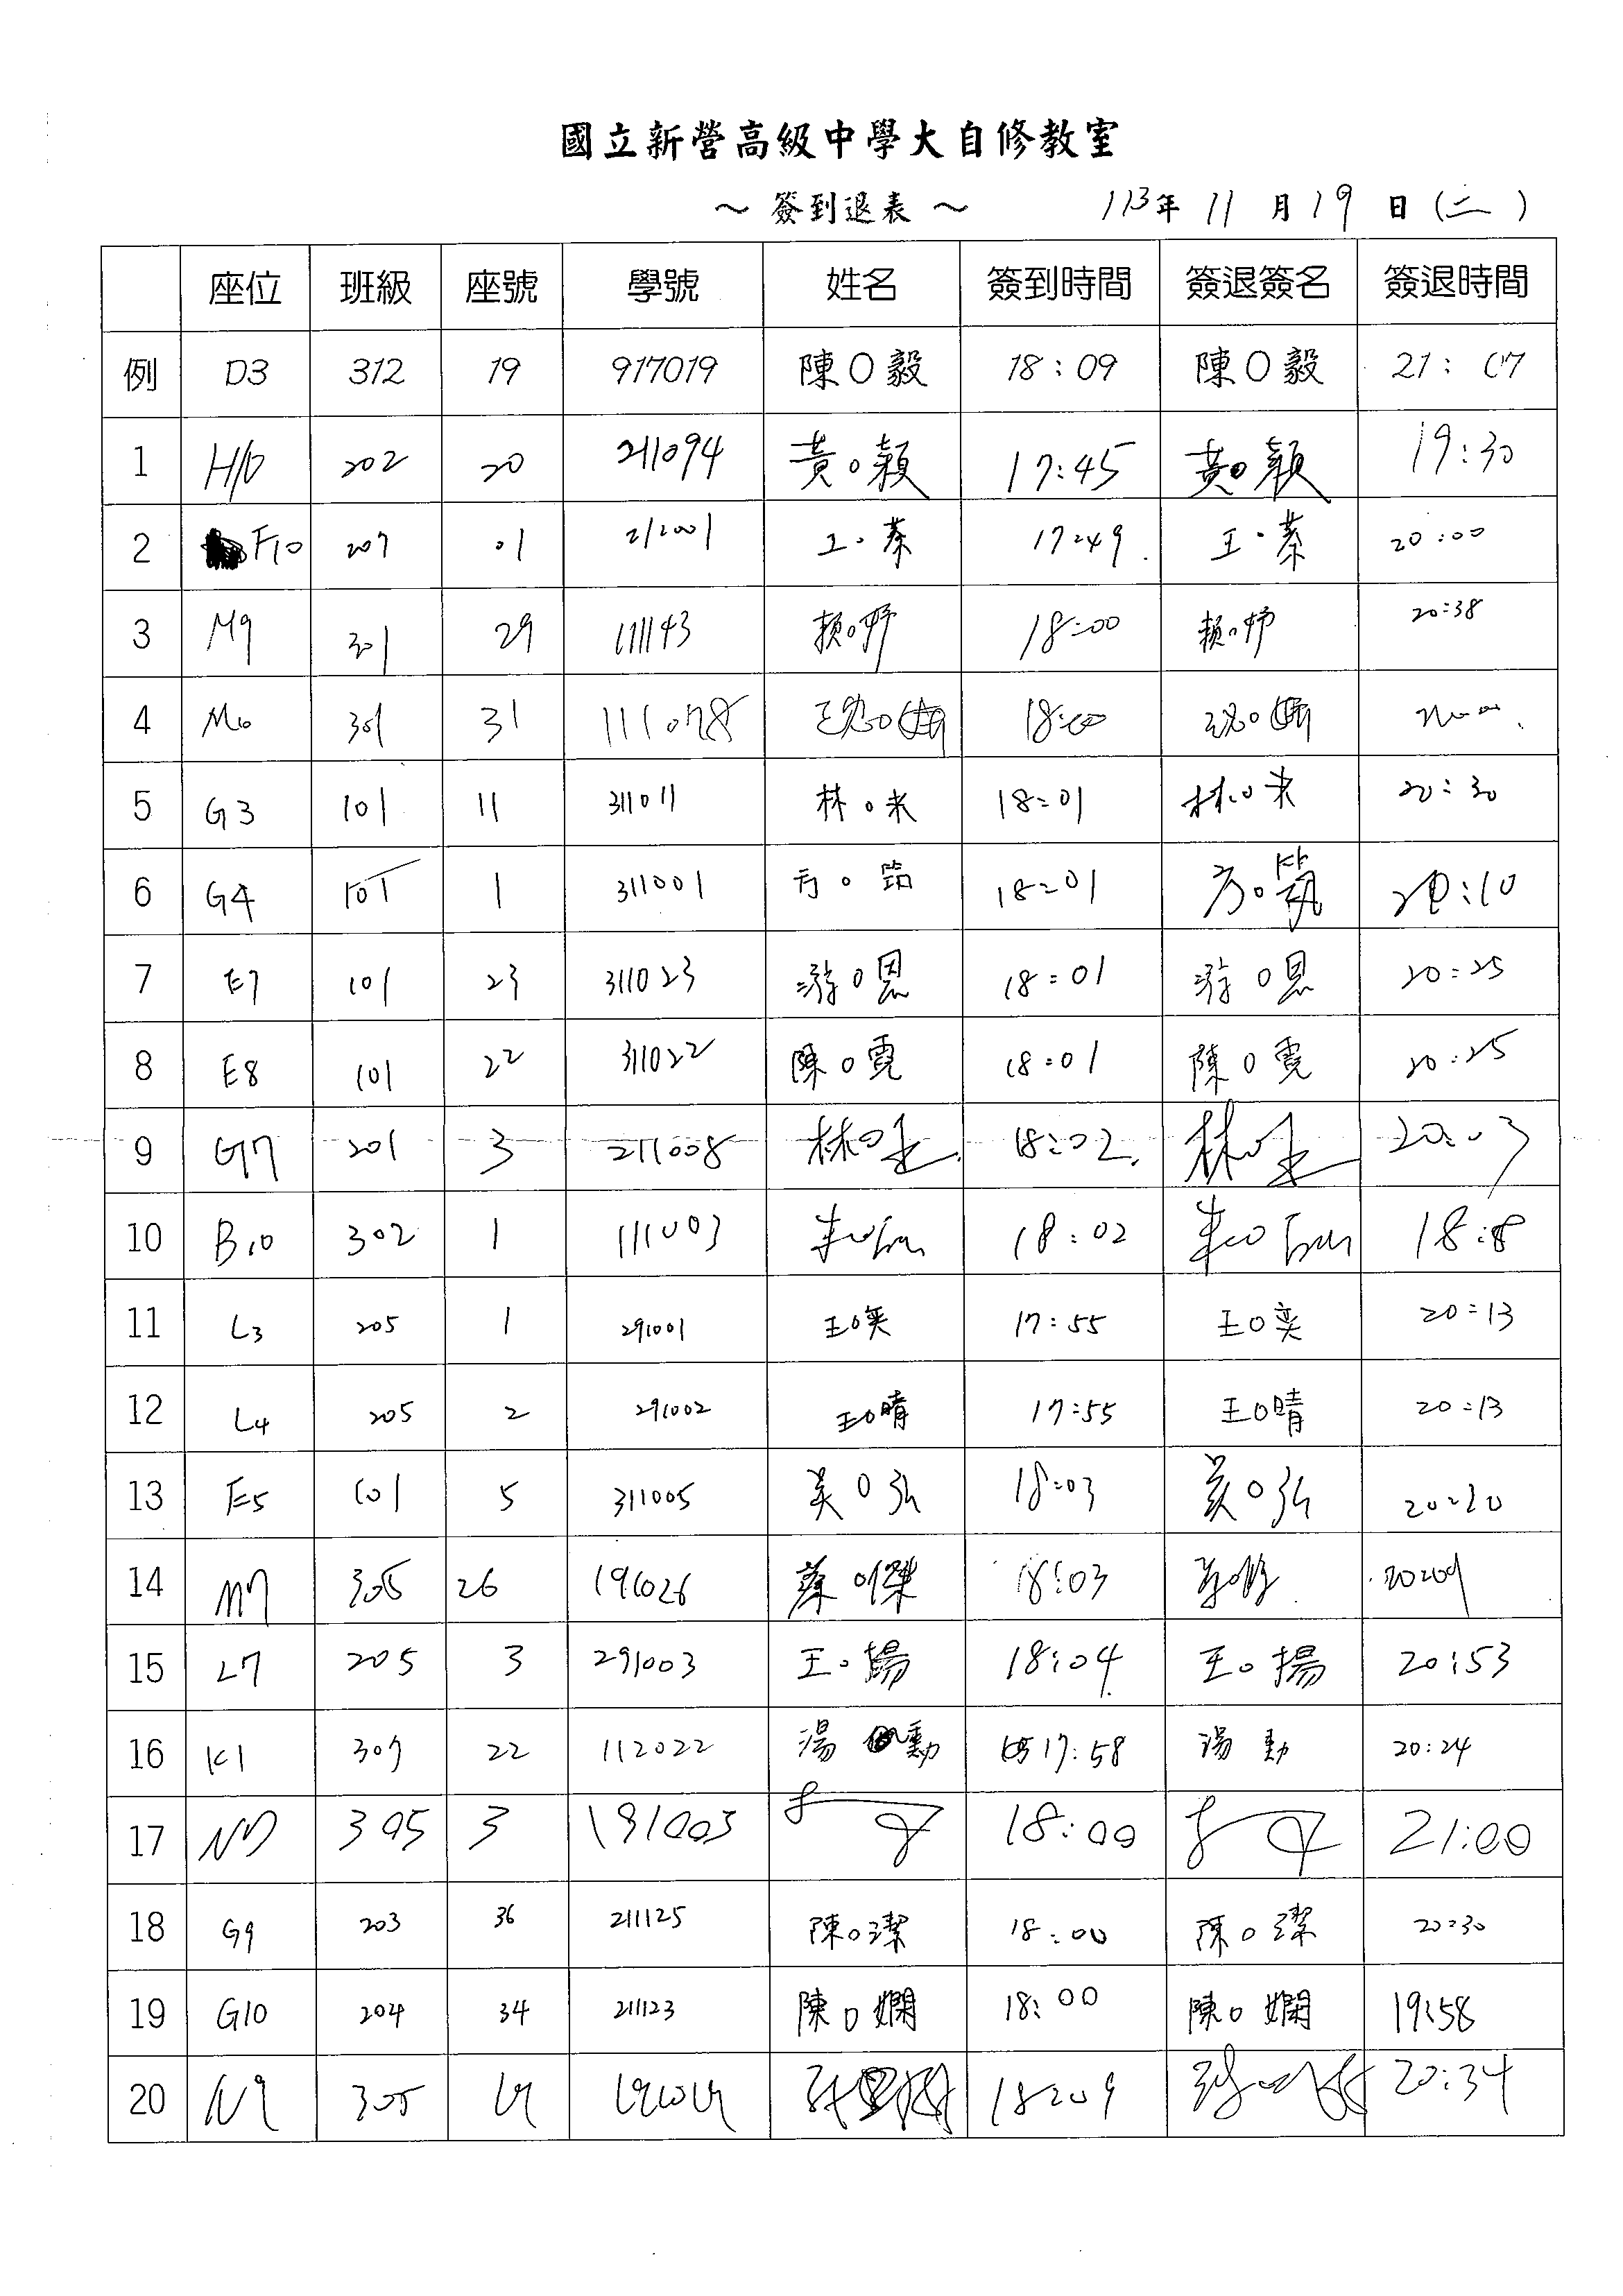 國立新營高級中學大自修教室
～ 簽到退表 ～ 113年 11 月 19 日 (二)
座位 班級 座號 學號 姓名 簽到時間 簽退簽名 簽退時間
例 D3 312 19 917019 陳O毅 18:09 陳O毅 21:07
1 H10 202 20 211094 黃O穎 17:45 黃O穎 19:30
2 F10 207 01 212001 王 蓁 17:49 王 蓁 20:00
3 M9 301 29 111143 賴O妤 18:00 賴O妤 20:38
4 M10 301 31 18:00
5 G3 101 11 311011 林O米 18:01 林O米 20:30
6 G4 101 1 311001 方O筑 18:01 方O筑 20:10
7 E7 101 23 311023 游O恩 18:01 游O恩 20:25
8 E8 101 22 311022 陳O霓 18:01 陳O霓 20:25
9 G7 201 3 211008 林O 18:02 林O 20:03
10 B10 302 1 111003 朱O 18:02 朱O 18:8
11 L3 205 1 291001 王O奕 17:55 王O奕 20:13
12 L4 205 2 291002 王O晴 17:55 王O晴 20:13
13 E5 101 5 311005 O弘 18:03 O弘 20:20
14 M7 305 26 191026 蔡O傑 18:03 20:09
15 L7 205 3 291003 王O揚 18:04 王O揚 20:53
16 K1 307 22 112022 湯 勳 17:58 湯 勳 20:24
17 N7 305 3 191003 18:00 21:00
18 G9 203 36 211125 陳O潔 18:00 陳O潔 20:30
19 G10 204 34 211123 陳O嫻 18:00 陳O嫻 19:58
20 N9 305 18:09 20:34